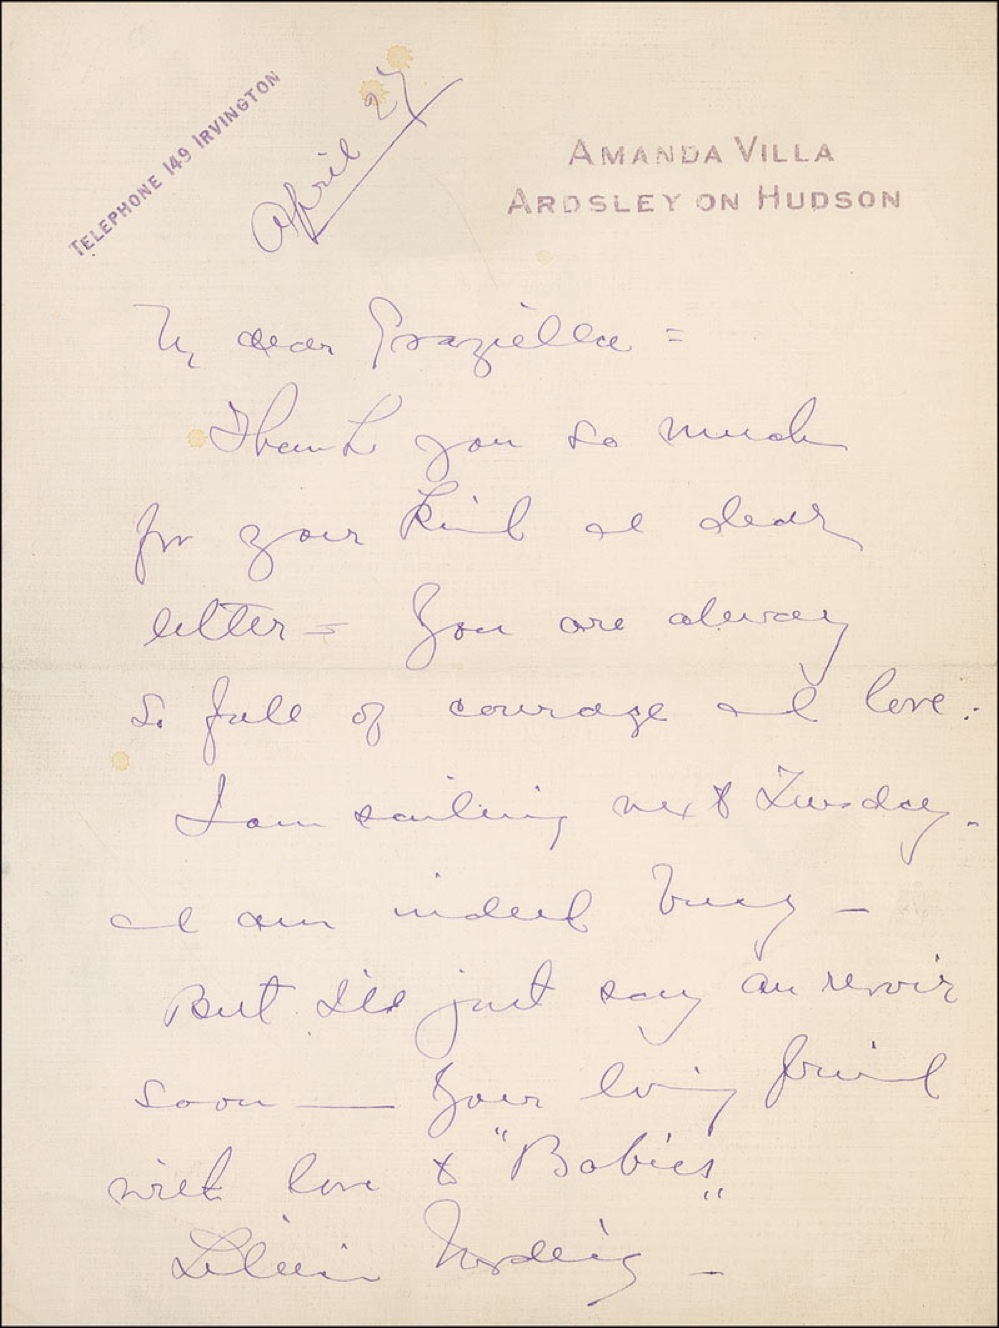 TELEPHONE 149 IRVINGTON
April 27
AMANDA VILLA
ARDSLEY ON HUDSON
My dear Graziella =
Thank you so much
for your kind and dear
letter = You are always
so full of courage and love.
I am sailing next Tuesday.
and am indeed busy —
But I'll just say au revoir
soon — Your loving friend
with love to "Babies"
Lillian Nordica —